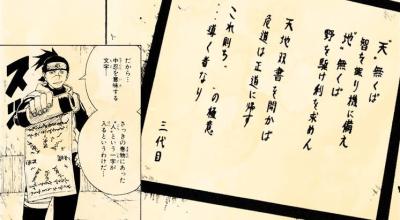 "天"無くば
智を識り機に備え
"地"無くば
野を駆け利を求めん
天地双書を開かば
危道は正道に帰す
これ則ち"　"の極意
…導く者なり
三代目
さっきの巻物にあった
"人"という一字が
入るというわけだ…
だから…
中忍を意味する
文字…
スッ